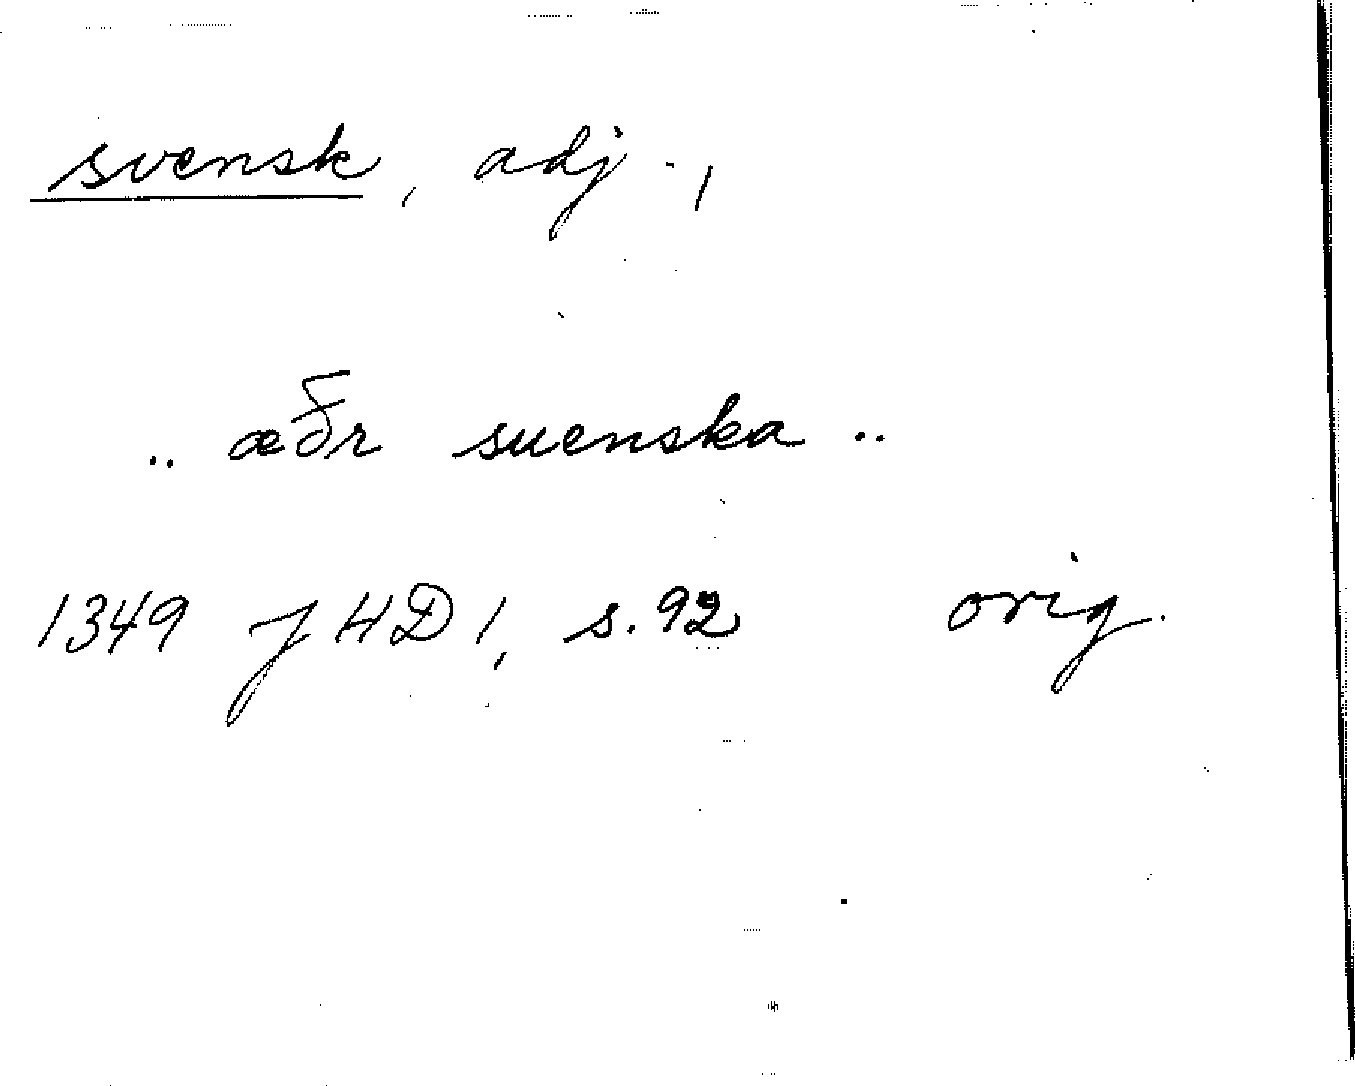 svensk, adj.,
.. æðr suenska ..
1349 JHD 1, s. 92 orig.